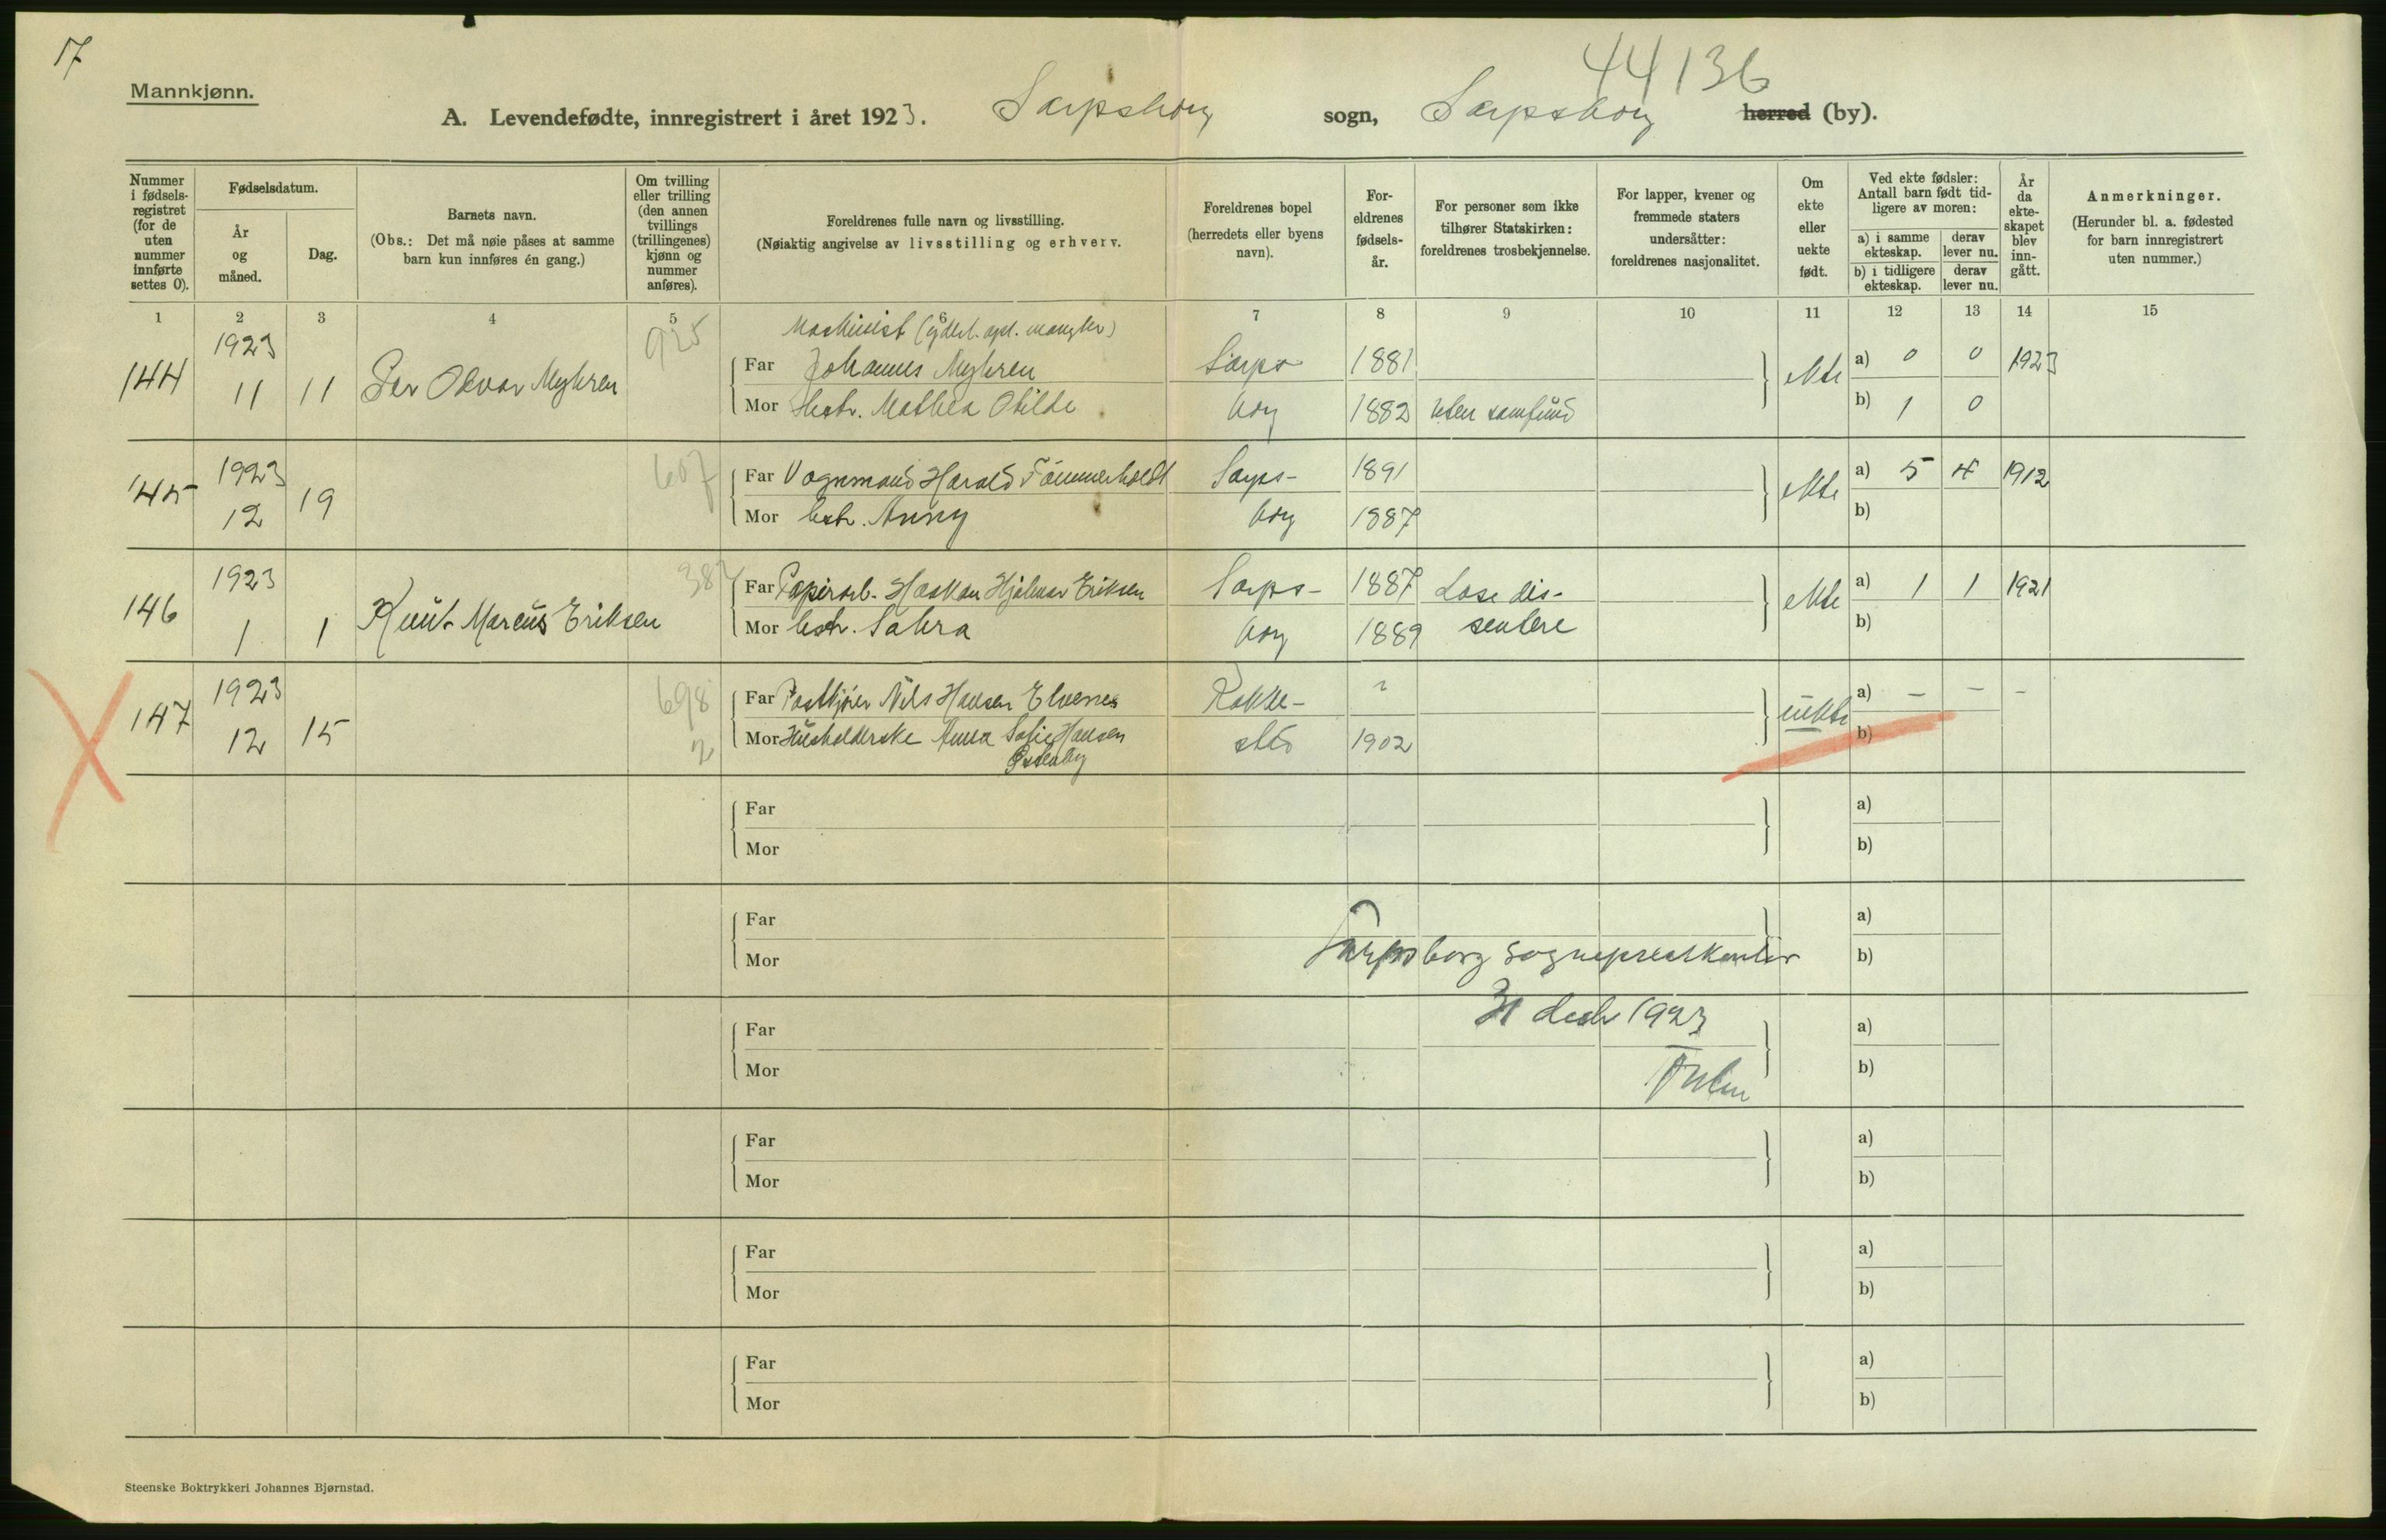 17
44136
Mannkjønn.
A. Levendefødte, innregistrert i året 1923. Sarpsborg sogn, Sarpsborg herred (by).
Nummer i fødsels-registret (for de uten nummer innførte settes 0).
Fødselsdatum.
År og måned.
Dag.
Barnets navn.
(Obs.: Det må nøie påses at samme barn kun innføres én gang.)
Om tvilling eller trilling (den annen tvillings (trillingenes) kjønn og nummer anføres).
Foreldrenes fulle navn og livsstilling.
(Nøiaktig angivelse av livsstilling og erhverv.
Foreldrenes bopel (herredets eller byens navn).
For-eldrenes fødsels-år.
For personer som ikke tilhører Statskirken: foreldrenes trosbekjennelse.
For lapper, kvener og fremmede staters undersåtter: foreldrenes nasjonalitet.
Om ekte eller uekte født.
Ved ekte fødsler: Antall barn født tid-ligere av moren:
a) i samme ekteskap. derav lever nu.
b) i tidligere ekteskap. derav lever nu.
År da ekte-skapet blev inn-gått.
Anmerkninger.
(Herunder bl. a. fødested for barn innregistrert uten nummer.)
1 2 3 4 5 6 7 8 9 10 11 12 13 14 15
925 Maskinist (yderl. opl. mangler)
144 1923 11 11 Per Olvar Myhren Far Johannes Myhren Sarps 1881 ekte a) 0 0 1923
Mor Hustr. Mathea Otilde borg 1882 uten samfund b) 1 0
145 1923 12 19 607 Far Vognmand Harald Tømmerholdt Sarps- 1891 ekte a) 5 4 1912
Mor hstr. Anny borg 1887 b)
146 1923 1 1 Knut Marcus Eriksen 382 Far Papirarb. Haakon Hjalmar Eriksen Sarps- 1887 Lose dis- ekte a) 1 1 1921
Mor hstr. Sahra borg 1889 sentere b)
147 1923 12 15 698 Far Postkjører Nils Hansen Elvenes Rakke- ? uekte a) - - -
2 Mor Husholderske Anna Sofie Hansen stad 1902 b)
Østenby
Far a)
Mor b)
Far a)
Mor Sarpsborg sogneprestkontor b)
31 decbr 1923
Far a)
Mor b)
Far a)
Mor b)
Far a)
Mor b)
Far a)
Mor b)
Steenske Boktrykkeri Johannes Bjørnstad.